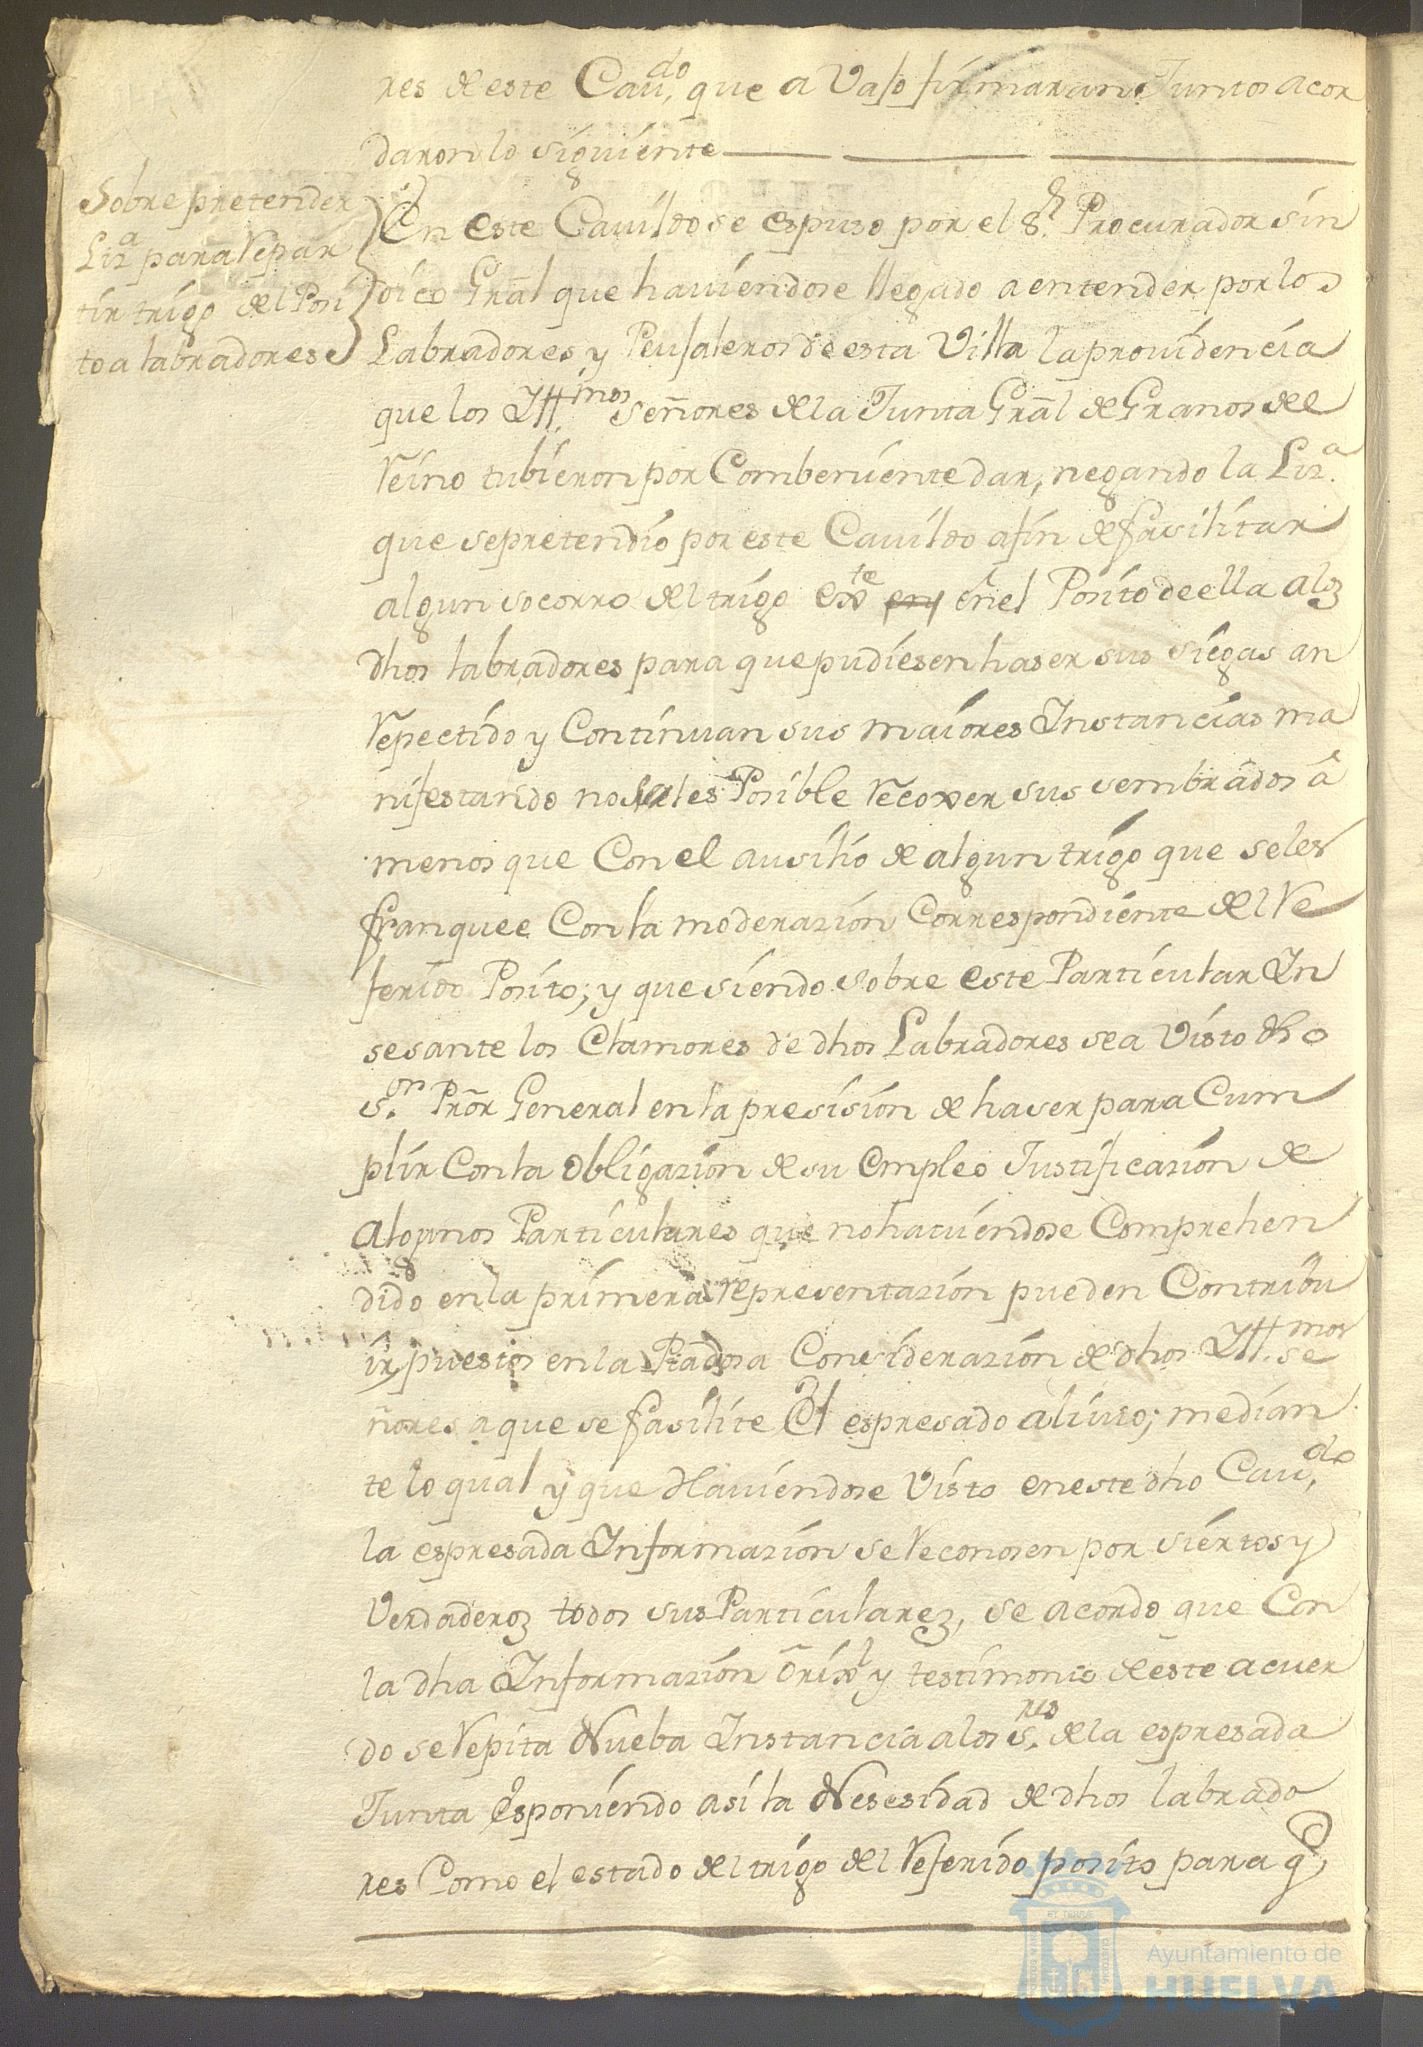 res de este Cavdo. que a Vaso firmaran Juntos acor
daron lo siguiente
Sobre pretender
Liza para repar
tir trigo del Posi
to a labradores
En este Cavildo se espuso por el Sr. Procurador sin
dico Gral que haviendose llegado a entender por los
Labradores y Peujaleros de esta Villa la providencia
que los Yllmos. Señores de la Junta Gral de Granos del
reino tubieron por Combeniente dar, negando la Liza.
que se pretendio por este Cavildo a fin de fasilitar
algun socorro del trigo exte en el Posito de ella a los
dhos labradores para que pudiesen haser sus siegas an
repectido y Continuan sus maiores Instancias ma
nifestando no serles Posible recoxer sus sembrados â
menos que Con el ausilio de algun trigo que se les
franquee Con la moderazion Correspondiente del re
ferido Posito; y que siendo sobre este Particular In
sesante los Clamores de dhos Labradores se a Visto dho
Son. Pror General en la presision de haser para Cum
plir Con la Obligazion de su empleo Justificazion de
algunos Particulares que no haviendose Comprehen
dido en la primera representazion pueden Contribu
ir puestos en la Piadosa Considerazion de dhos Yllmos. se
ñores a que se fasilite El espresado alivio; median
te lo qual y que Haviendose Visto en este dho Cavdo.
la espresada Informazion se reconosen por siertos y
Verdaderos todos sus Particulares, se acordo que Con
la dha Informazion orixl y testimonio de este acuer
do se repita Nueba Instancia a los Sres. de la espresada
Junta esponiendo asi la Nesesidad de dhos labrado
res Como el estado del trigo del referido posito para qe
Ayuntamiento de
HUELVA